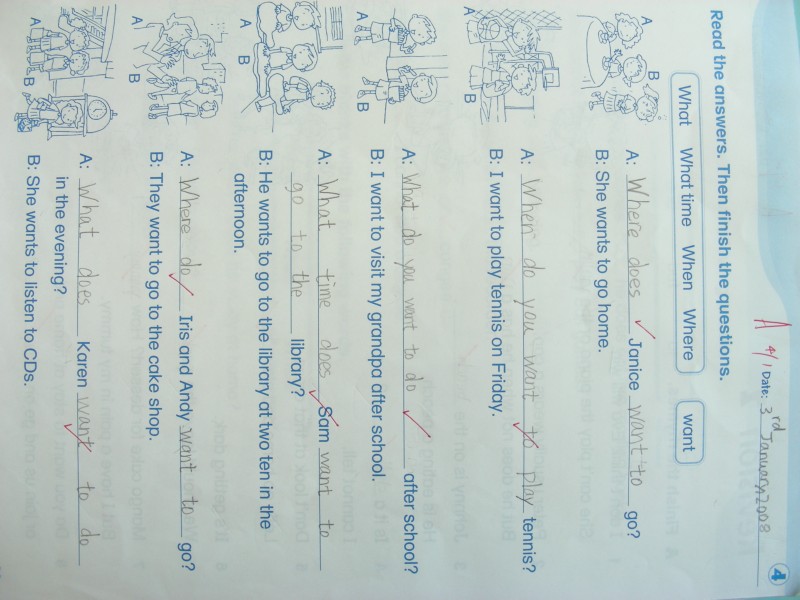 4
A 4/1 Date: 3rd January, 2008
Read the answers. Then finish the questions.
What What time When Where want
A B
A: Where does Janice want to go?
B: She wants to go home.
A B
A: When do you want to play tennis?
B: I want to play tennis on Friday.
A B
A: What do you want to do after school?
B: I want to visit my grandpa after school.
A B
A: What time does Sam want to
go to the library?
B: He wants to go to the library at two ten in the
afternoon.
A B
A: Where do Iris and Andy want to go?
B: They want to go to the cake shop.
A B
A: What does Karen want to do
in the evening?
B: She wants to listen to CDs.